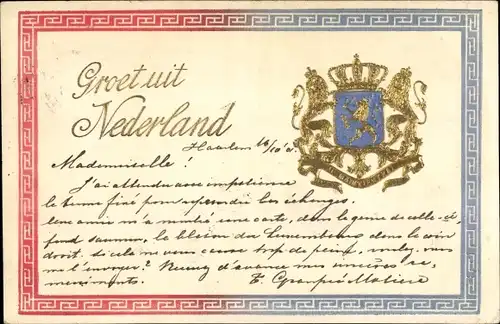 Groet uit
Nederland
Haarlem
Mademoiselle!
J'ai attendu avec impatience
le terme fixé pour reprendre les échanges.
une amie m'a montré une carte, dans le genre de celle-ci,
fond saumon, le blason des Luxembourg dans le coin
droit. si cela ne vous cause trop de peine,
me l'envoyer? Recevez d'avance mes sincères re,
merciments.